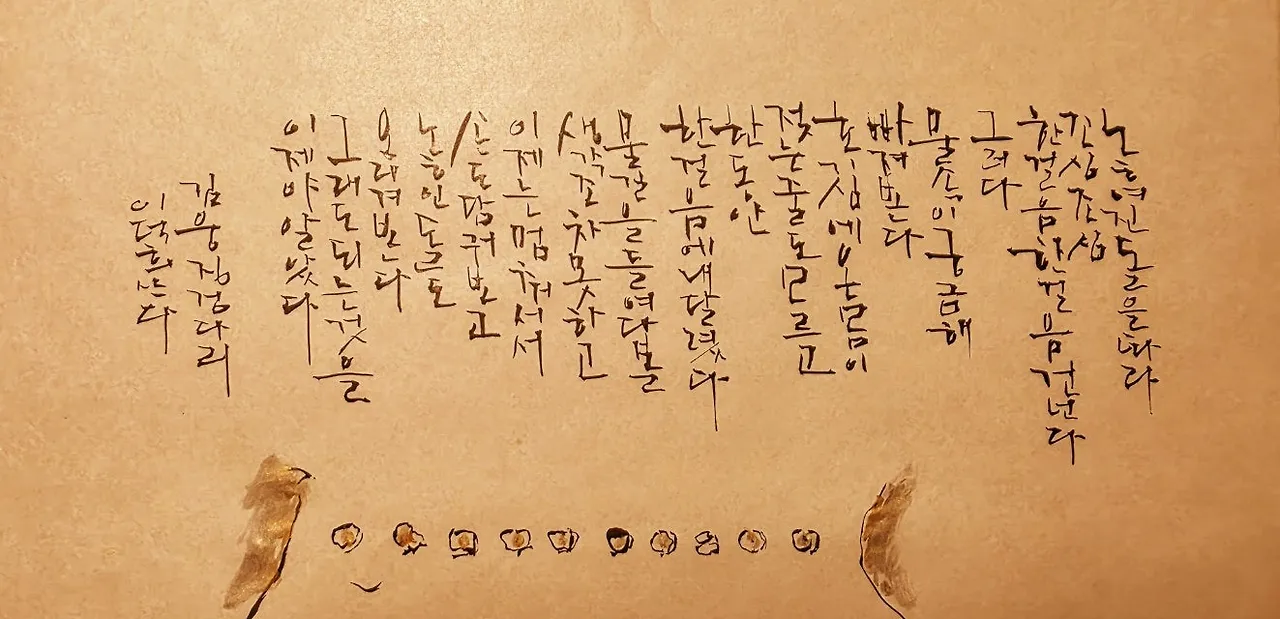 놓여진 돌을 따라
조심조심
한걸음 한걸음 건넌다
그러다
물속이 궁금해
빠져본다
호심에 옷이
젖는 줄도 모르고
한동안
한걸음에 내달렸다
물결을 들여다볼
생각조차 못하고
이제는 멈춰서서
손도 담궈보고
놓인 돌도
올려본다
그래도 되는 것을
이제야 알았다
김용 징검다리
이덕희 쓰다